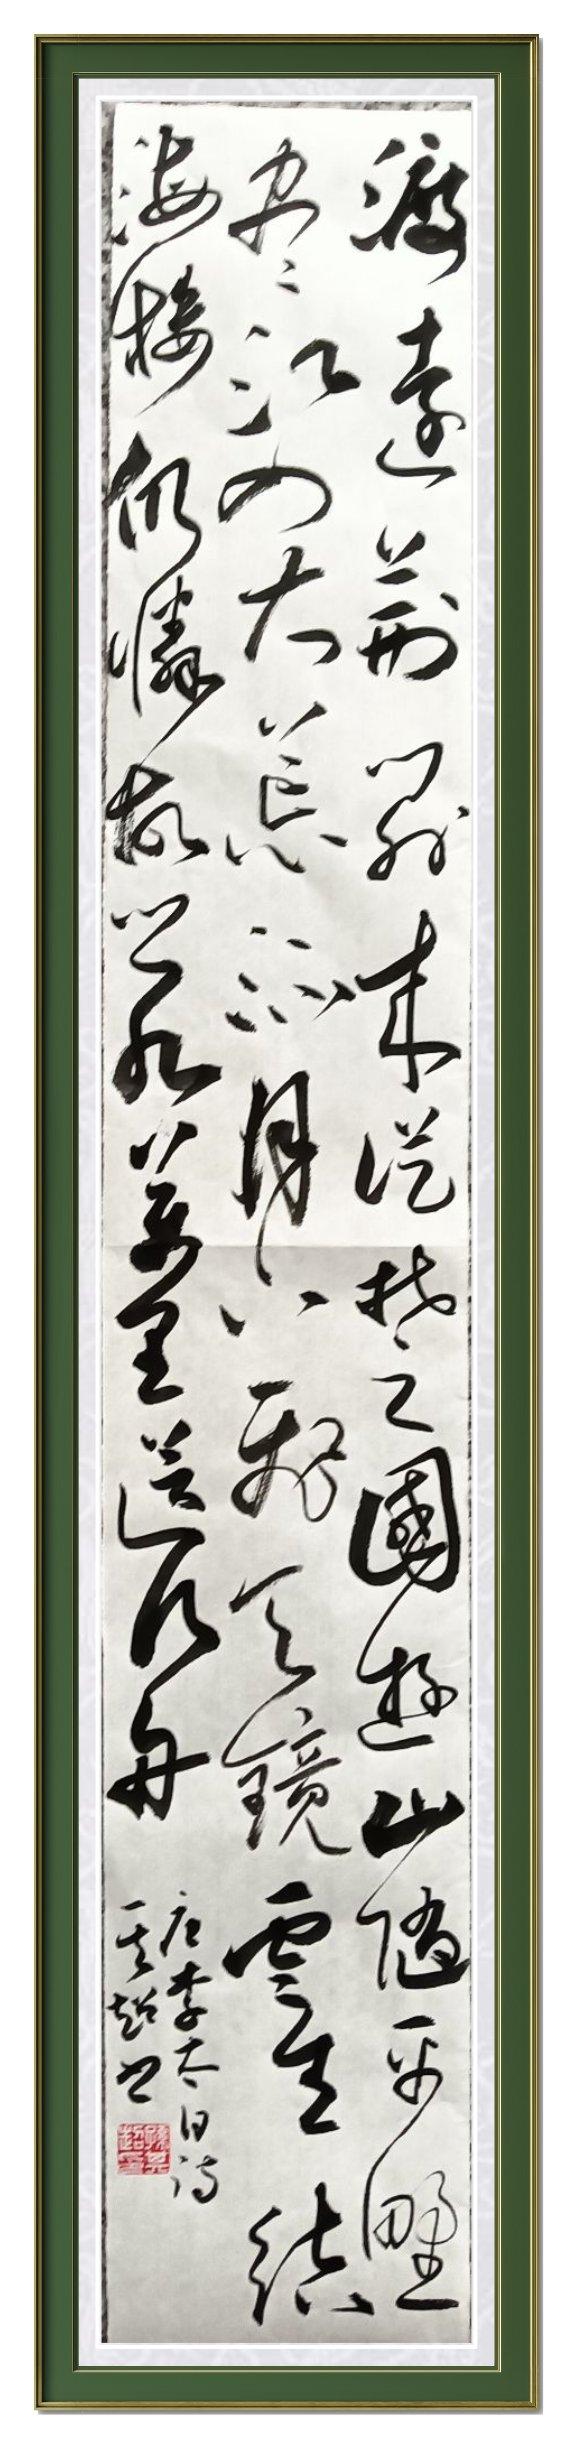 渡遠荊門外來從楚國遊山隨平野
盡江入大荒流月下飛天鏡雲生結
海樓仍憐故鄉水萬里送行舟
唐李太白詩
其超书